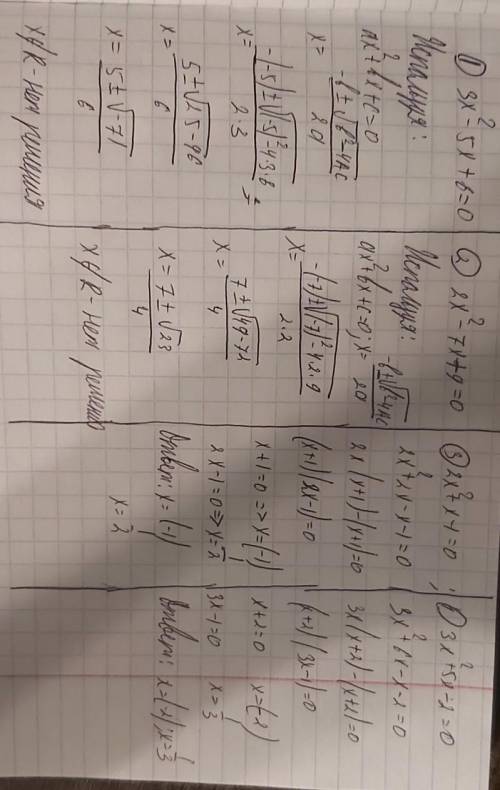 ① 3x² - 5x + 6 = 0
Используя:
ax² + bx + c = 0
x = (-b ± √(b² - 4ac)) / 2a
x = (-(-5) ± √((-5)² - 4·3·6)) / 2·3
x = (5 ± √(25 - 96)) / 6
x = (5 ± √-71) / 6
x∉R - нет решения
② 2x² - 7x + 9 = 0
Используя:
ax² + bx + c = 0, x = (-b ± √(b² - 4ac)) / 2a
x = (-(-7) ± √((-7)² - 4·2·9)) / 2·2
x = (7 ± √(49 - 72)) / 4
x = (7 ± √-23) / 4
x∉R - нет решения
③ 2x² + x - 1 = 0
2x² + 2x - x - 1 = 0
2x(x+1) - (x+1) = 0
(x+1)(2x-1) = 0
x + 1 = 0 => x = (-1)
2x - 1 = 0 => x = 1/2
Ответ: x = (-1)
x = 1/2
3x² + 5x - 2 = 0
3x² + 6x - x - 2 = 0
3x(x+2) - (x+2) = 0
(x+2)(3x-1) = 0
x + 2 = 0 x = (-2)
3x - 1 = 0 x = 1/3
Ответ: x = (-2) x = 1/3